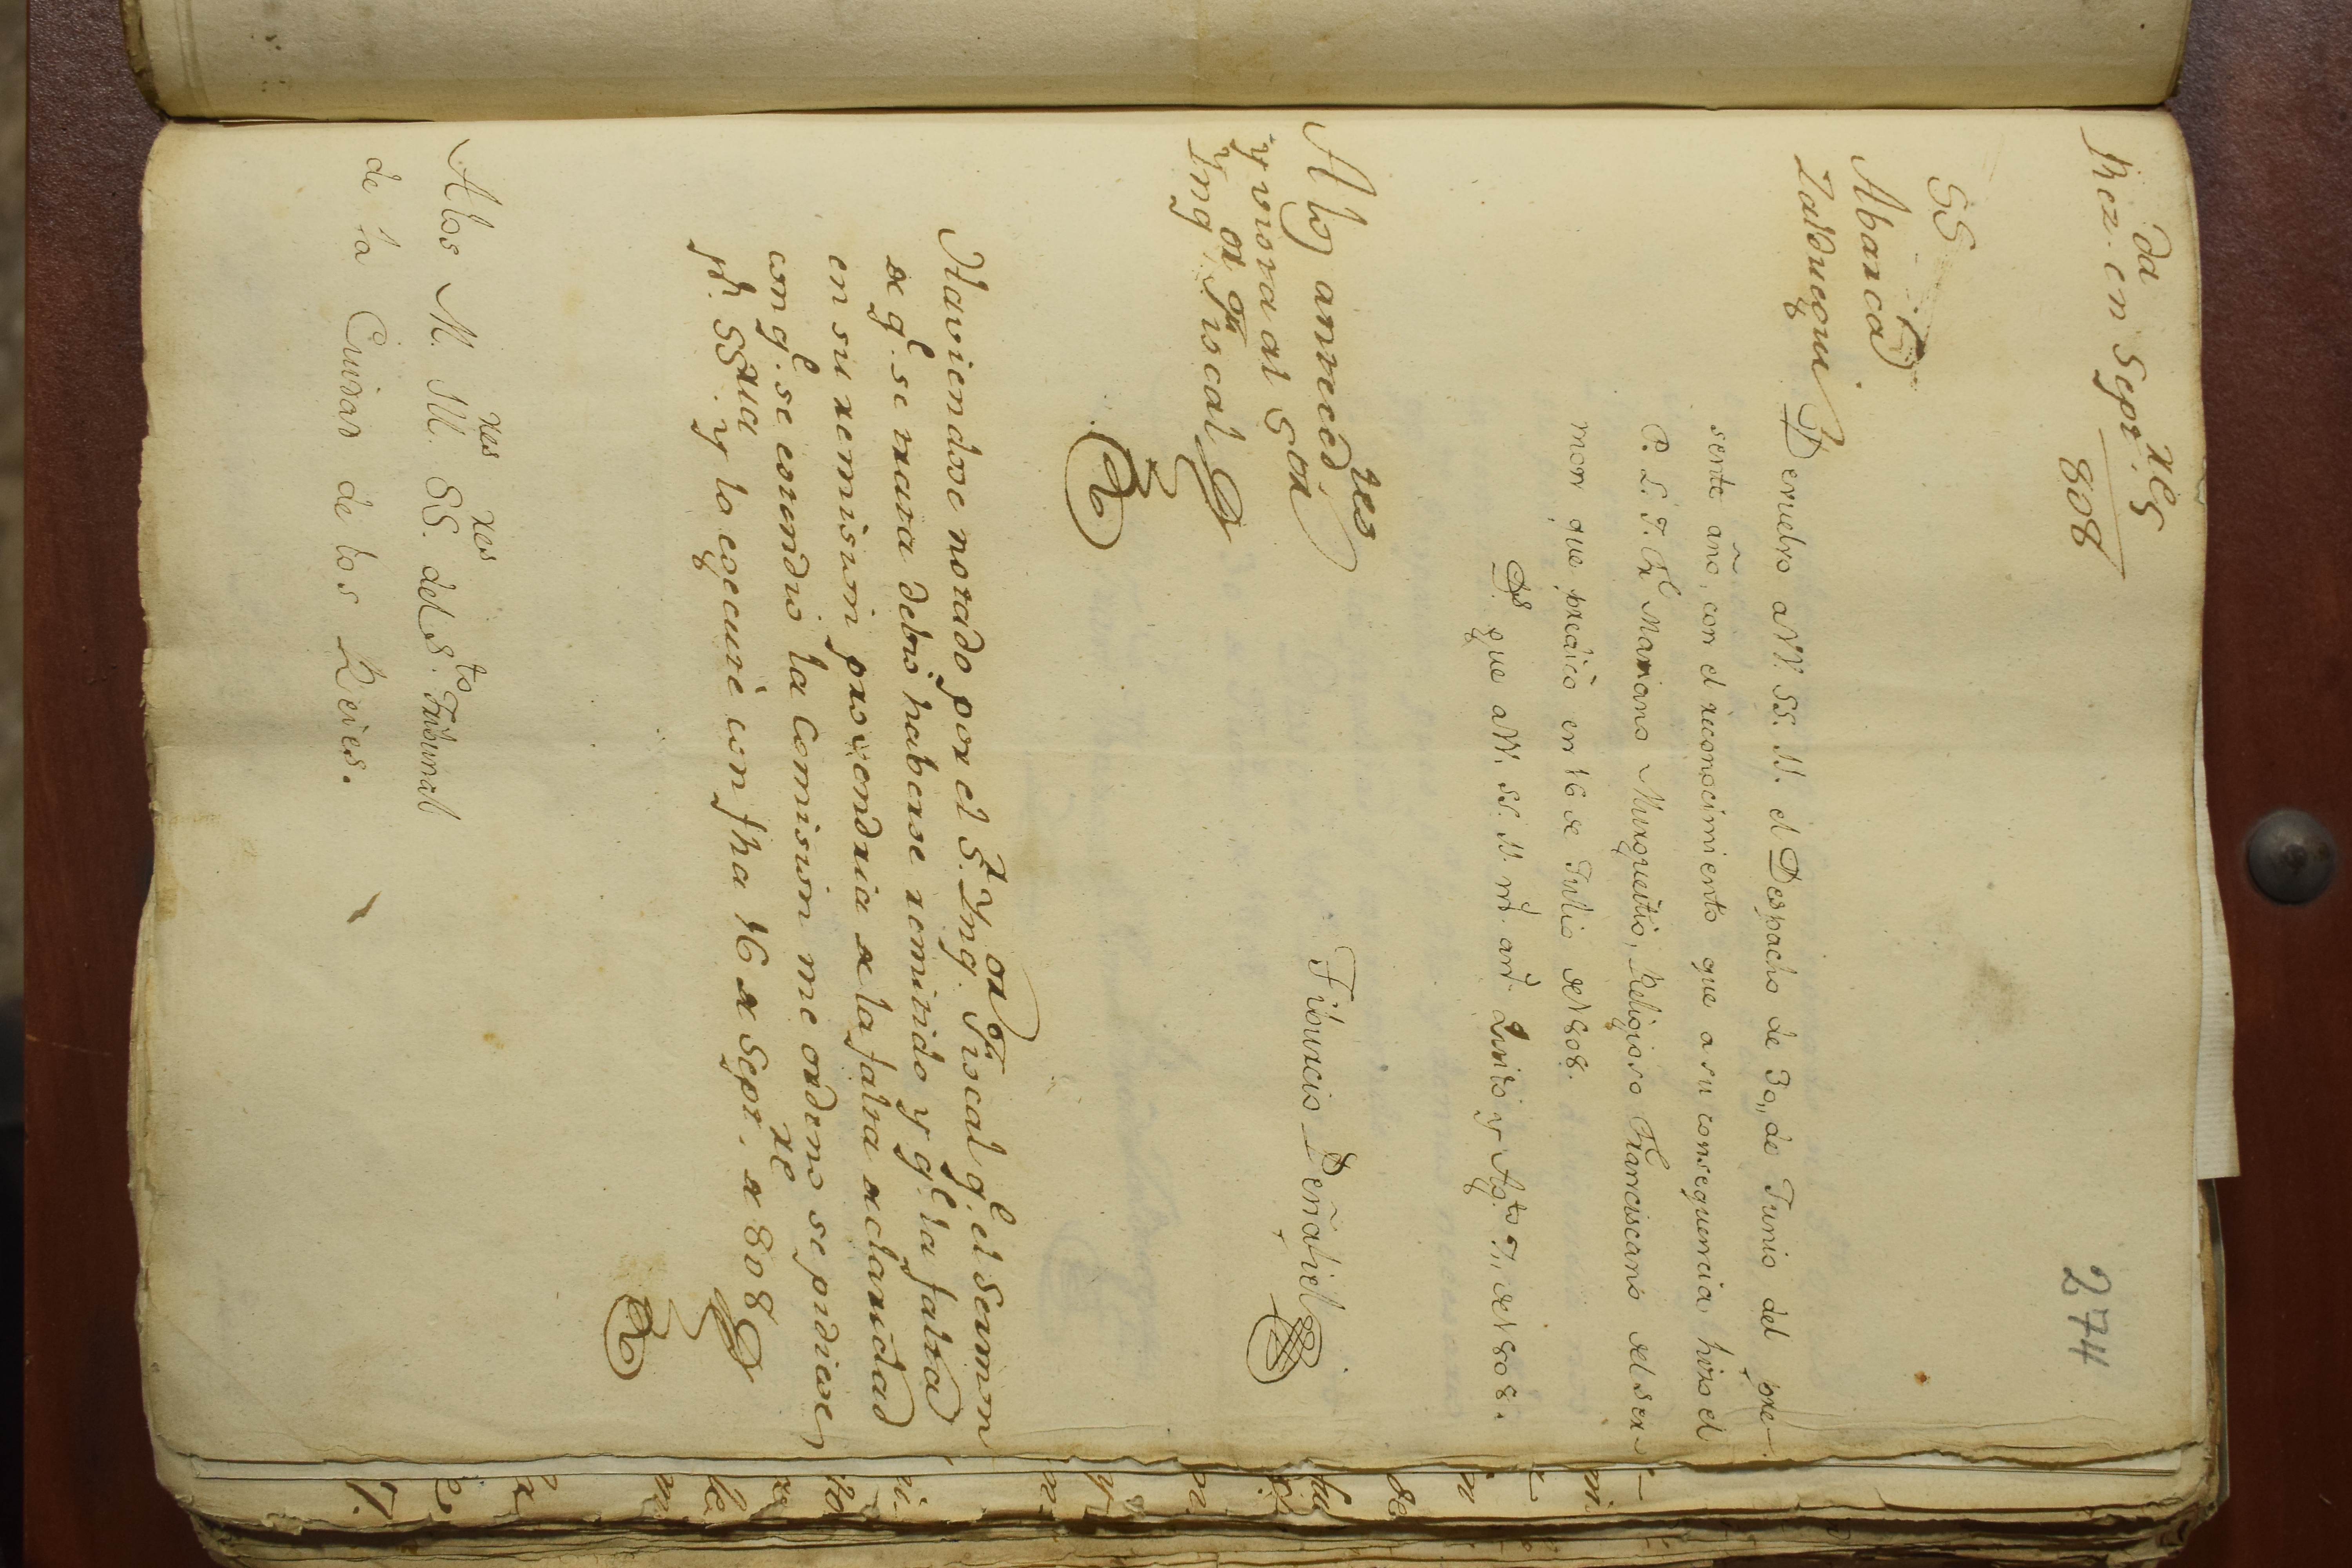 274
Rez.da en Sepr.re 5
808
SS
Abarca
Zalduegui
Devuelvo a VV. SS. Y. el Despacho de 30,, de Junio del pre-
sente año, con el reconocimiento que a su consequencia hizo el
P. L. J. Fr. Mariano Murgueitio, Religioso Franciscano del ser-
mon que predicó en 16 de Julio de 1808.
Ds. gue a VV. SS. Y. ms. as. Quito y Agto 7,, de 1808.
A los anteced.tes
y vista al Sor
Ynq.or Fiscal
Tiburcio Peñafiel
Haviendose notado por el Sr. Ynq.or Fiscal q.e el sermon
de q.e se trata debió haberse remitido y q.e la falta
en su remision provendria de la falta de claridad
con q.e se estendió la Comision me ordenó se pidiese
pr. SSria y lo egecuté con fha 16 de Sepr.re de 808
A los M. Ytres SS.res del S.to Tribunal
de la Ciudad de los Reies.